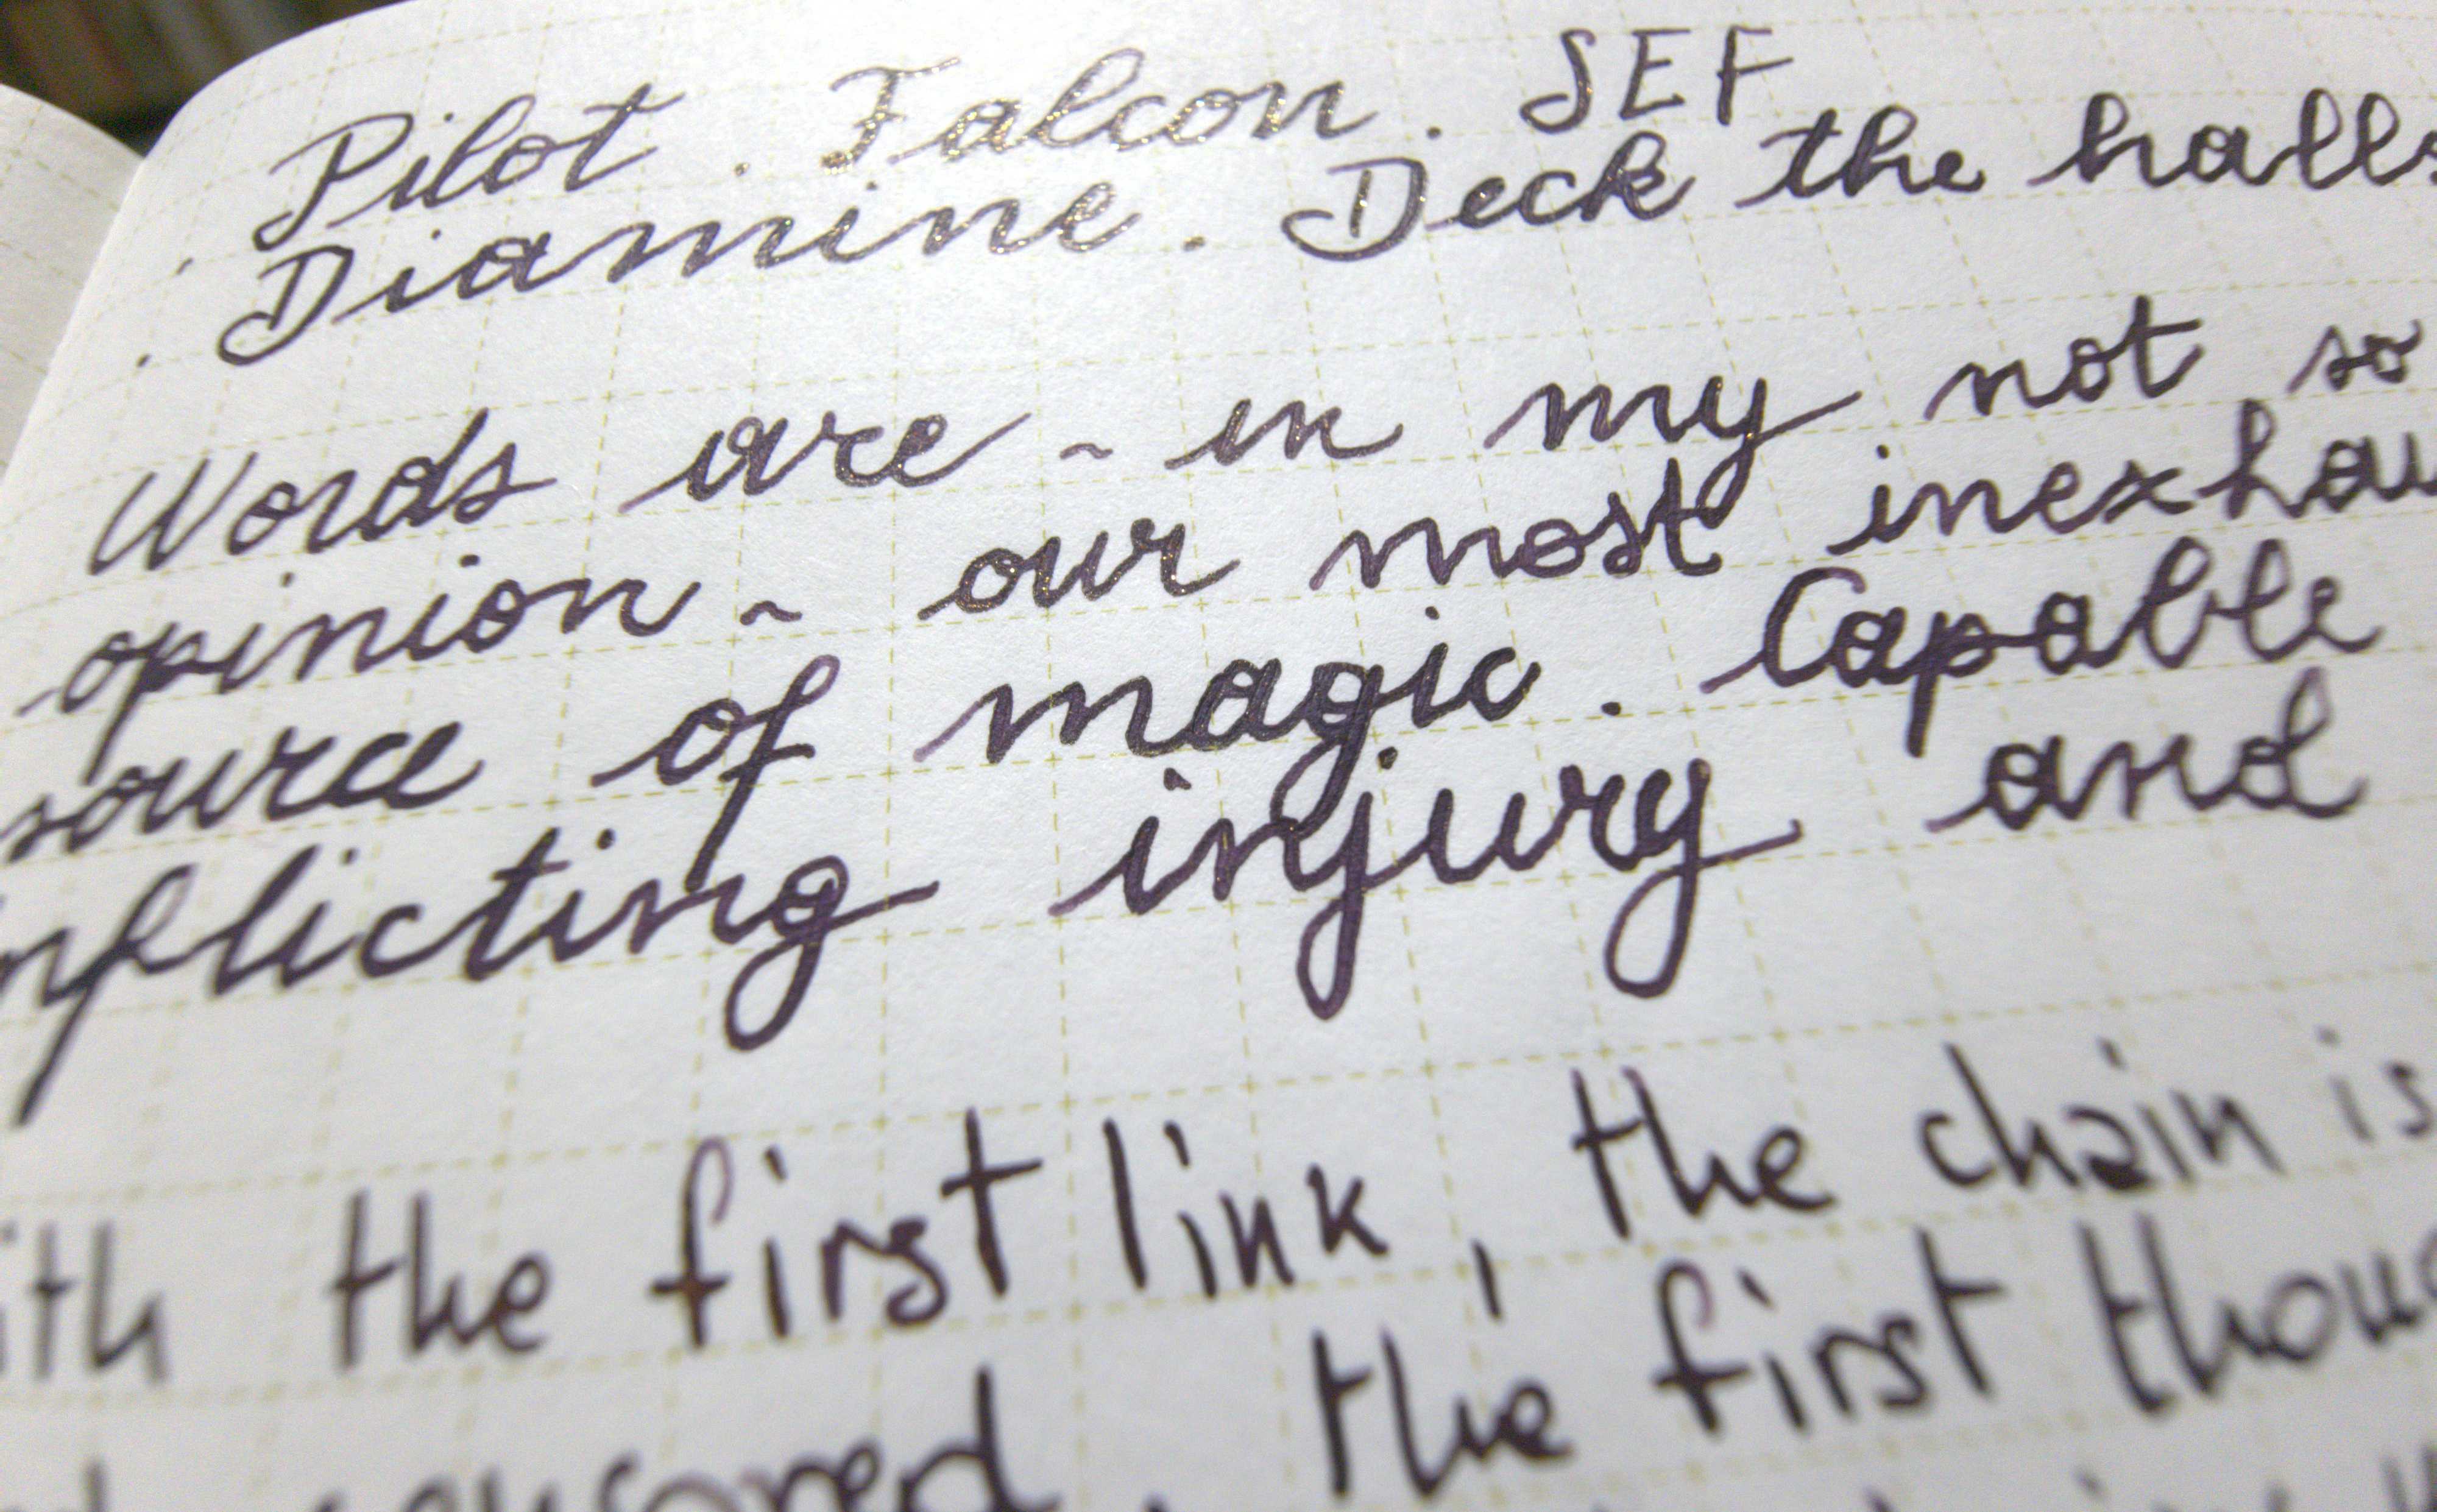 . Pilot . Falcon . SEF
. Diamine . Deck the halls
Words are ~ in my not so
opinion ~ our most inexhau
source of magic . Capable
nflicting injury and
ith the first link , the chain is
the first thoug